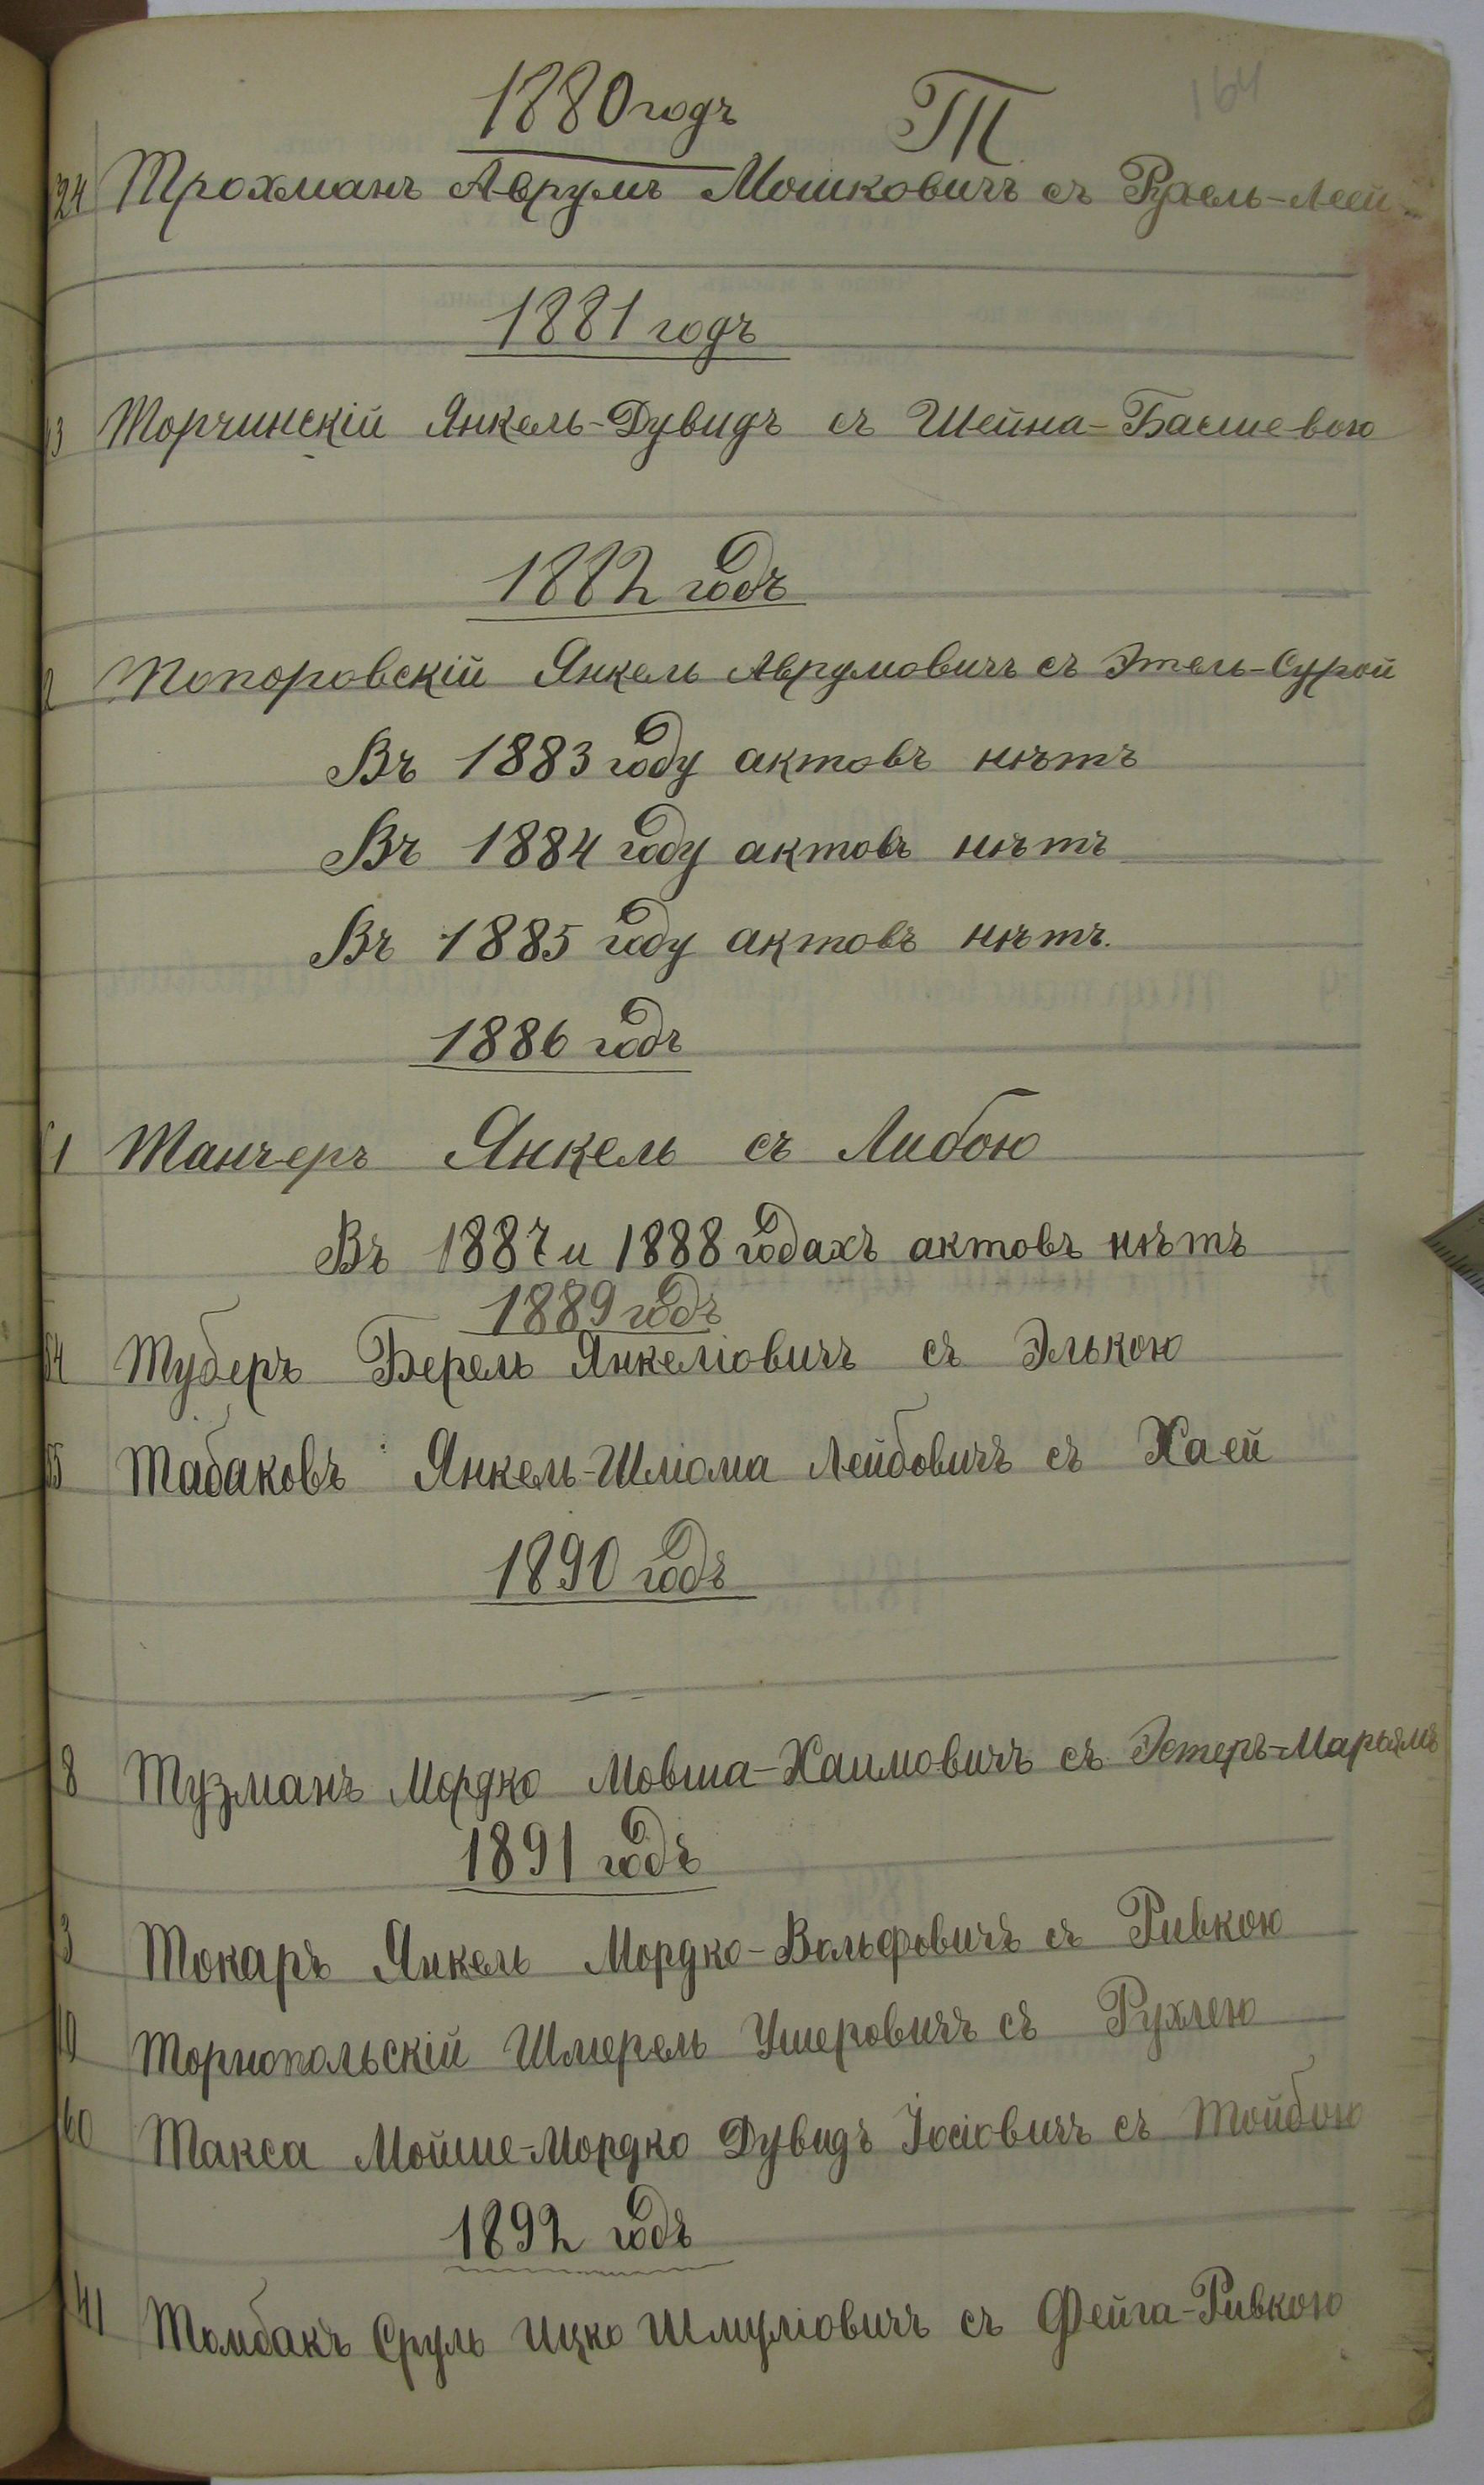 164
1880 годъ Т
24 Трохманъ Аврумъ Мошковичъ съ Рухель-Леей
1881 годъ
13 Торчинскій Янкель-Дувидъ съ Шейна-Басшевою
1882 годъ
2 Топоровскій Янкель Аврумовичъ съ Этель-Сурой
Въ 1883 году актовъ нѣтъ
Въ 1884 году актовъ нѣтъ
Въ 1885 году актовъ нѣтъ.
1886 годъ
1 Танчеръ Янкель съ Либою
Въ 1887 и 1888 годахъ актовъ нѣтъ
1889 годъ
54 Туберъ Берель Янкеліовичъ съ Элькою
55 Табаковъ Янкель-Шліома Лейбовичъ съ Хаей
1890 годъ
8 Тузманъ Мордко Мовша-Хаимовичъ съ Эстеръ-Марьямъ
1891 годъ
3 Токаръ Янкель Мордко-Вольфовичъ съ Ривкою
10 Торнопольскій Шмерель Ушеровичъ съ Рухлею
60 Такса Мойше-Мордко Дувидъ Іосіовичъ съ Тойбою
1892 годъ
41 Томбакъ Сруль Ицко Шмуліовичъ съ Фейга-Ривкою